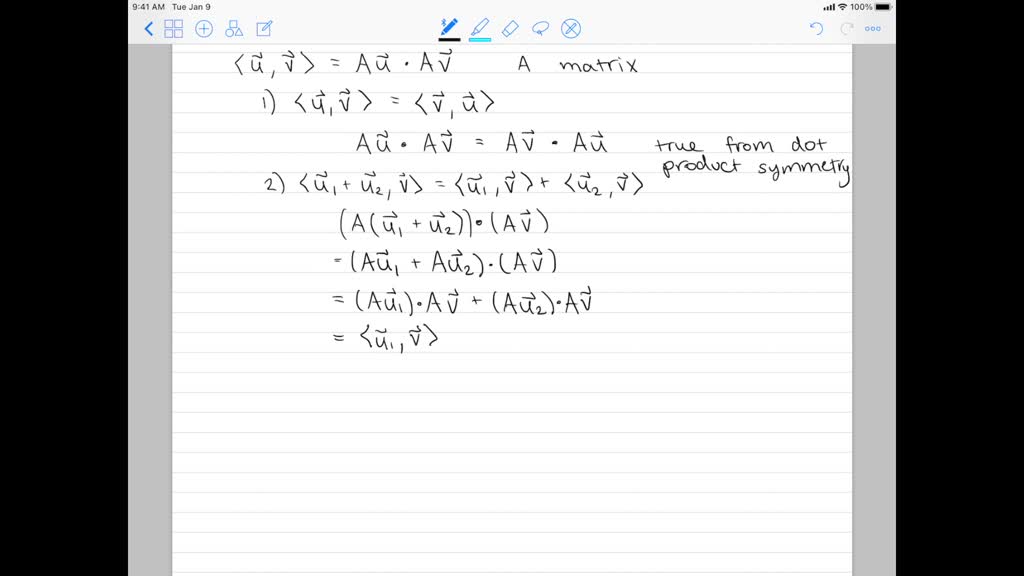 9:41 AM Tue Jan 9 100%
⟨u⃗, v⃗⟩ = Au⃗ · Av⃗ A matrix
1) ⟨u⃗, v⃗⟩ = ⟨v⃗, u⃗⟩
Au⃗ · Av⃗ = Av⃗ · Au⃗ true from dot
product symmetry
2) ⟨u⃗₁ + u⃗₂, v⃗⟩ = ⟨u⃗₁, v⃗⟩ + ⟨u⃗₂, v⃗⟩
(A(u⃗₁ + u⃗₂)) · (Av⃗)
= (Au⃗₁ + Au⃗₂) · (Av⃗)
= (Au⃗₁) · Av⃗ + (Au⃗₂) · Av⃗
= ⟨u⃗₁, v⃗⟩